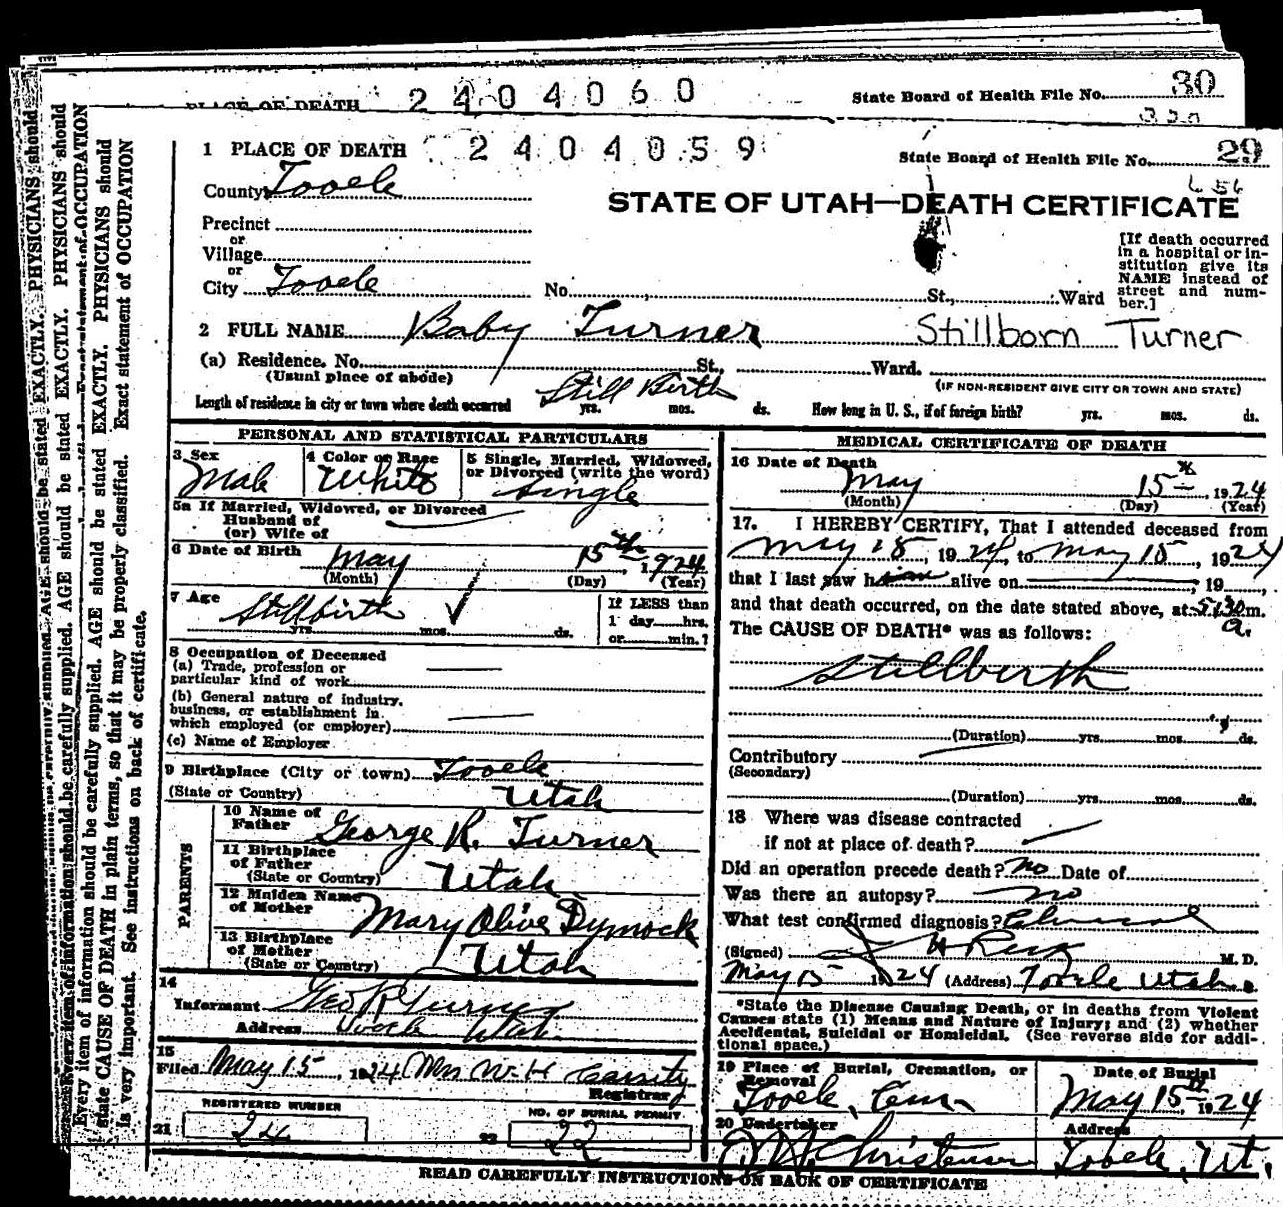 PLACE OF DEATH 2404060 State Board of Health File No. 30
1 PLACE OF DEATH 2404059 State Board of Health File No. 29
County Tooele
STATE OF UTAH—DEATH CERTIFICATE
Precinct
or
Village
or
City Tooele No. St., Ward
[If death occurred
in a hospital or in-
stitution give its
NAME instead of
street and num-
ber.]
2 FULL NAME Baby Turner Stillborn Turner
(a) Residence. No. St., Ward.
(Usual place of abode) (IF NON-RESIDENT GIVE CITY OR TOWN AND STATE)
Still Birth
Length of residence in city or town where death occurred yrs. mos. ds. How long in U. S., if of foreign birth? yrs. mos. ds.
PERSONAL AND STATISTICAL PARTICULARS
3 Sex
Male
4 Color or Race
White
5 Single, Married, Widowed,
or Divorced (write the word)
Single
5a If Married, Widowed, or Divorced
Husband of
(or) Wife of
6 Date of Birth
May 15th 1924
(Month) (Day) (Year)
7 Age
Stillbirth
yrs. mos. ds.
If LESS than
1 day hrs.
or min.?
8 Occupation of Deceased
(a) Trade, profession or
particular kind of work
(b) General nature of industry,
business, or establishment in
which employed (or employer)
(c) Name of Employer
9 Birthplace (City or town) Tooele
(State or Country) Utah
PARENTS
10 Name of
Father George R. Turner
11 Birthplace
of Father
(State or Country) Utah
12 Maiden Name
of Mother Mary Olive Dymock
13 Birthplace
of Mother
(State or Country) Utah
14
Informant Geo R Turner
Address Tooele Utah
15
Filed May 15, 1924 Mrs W. H Cassity
Registrar
REGISTERED NUMBER
21 24
NO. OF BURIAL PERMIT
22 22
MEDICAL CERTIFICATE OF DEATH
16 Date of Death
May 15th 1924
(Month) (Day) (Year)
17. I HEREBY CERTIFY, That I attended deceased from
May 15, 1924, to May 15, 1924
that I last saw h alive on 19
and that death occurred, on the date stated above, at 5:30 m.
a.
The CAUSE OF DEATH* was as follows:
Stillbirth
(Duration) yrs. mos. ds.
Contributory
(Secondary)
(Duration) yrs. mos. ds.
18 Where was disease contracted
if not at place of death?
Did an operation precede death? no Date of
Was there an autopsy? no
What test confirmed diagnosis?
(Signed) M. D.
May 15 1924 (Address) Tooele Utah
*State the Disease Causing Death, or in deaths from Violent
Causes state (1) Means and Nature of Injury; and (2) whether
Accidental, Suicidal or Homicidal. (See reverse side for addi-
tional space.)
19 Place of Burial, Cremation, or
Removal
Tooele, Cem
Date of Burial
May 15th 1924
20 Undertaker
Christensen
Address
Tooele, Ut.
READ CAREFULLY INSTRUCTIONS ON BACK OF CERTIFICATE
Every item of information should be carefully supplied. AGE should be stated EXACTLY. PHYSICIANS should
state CAUSE OF DEATH in plain terms, so that it may be properly classified. Exact statement of OCCUPATION
is very important. See instructions on back of certificate.